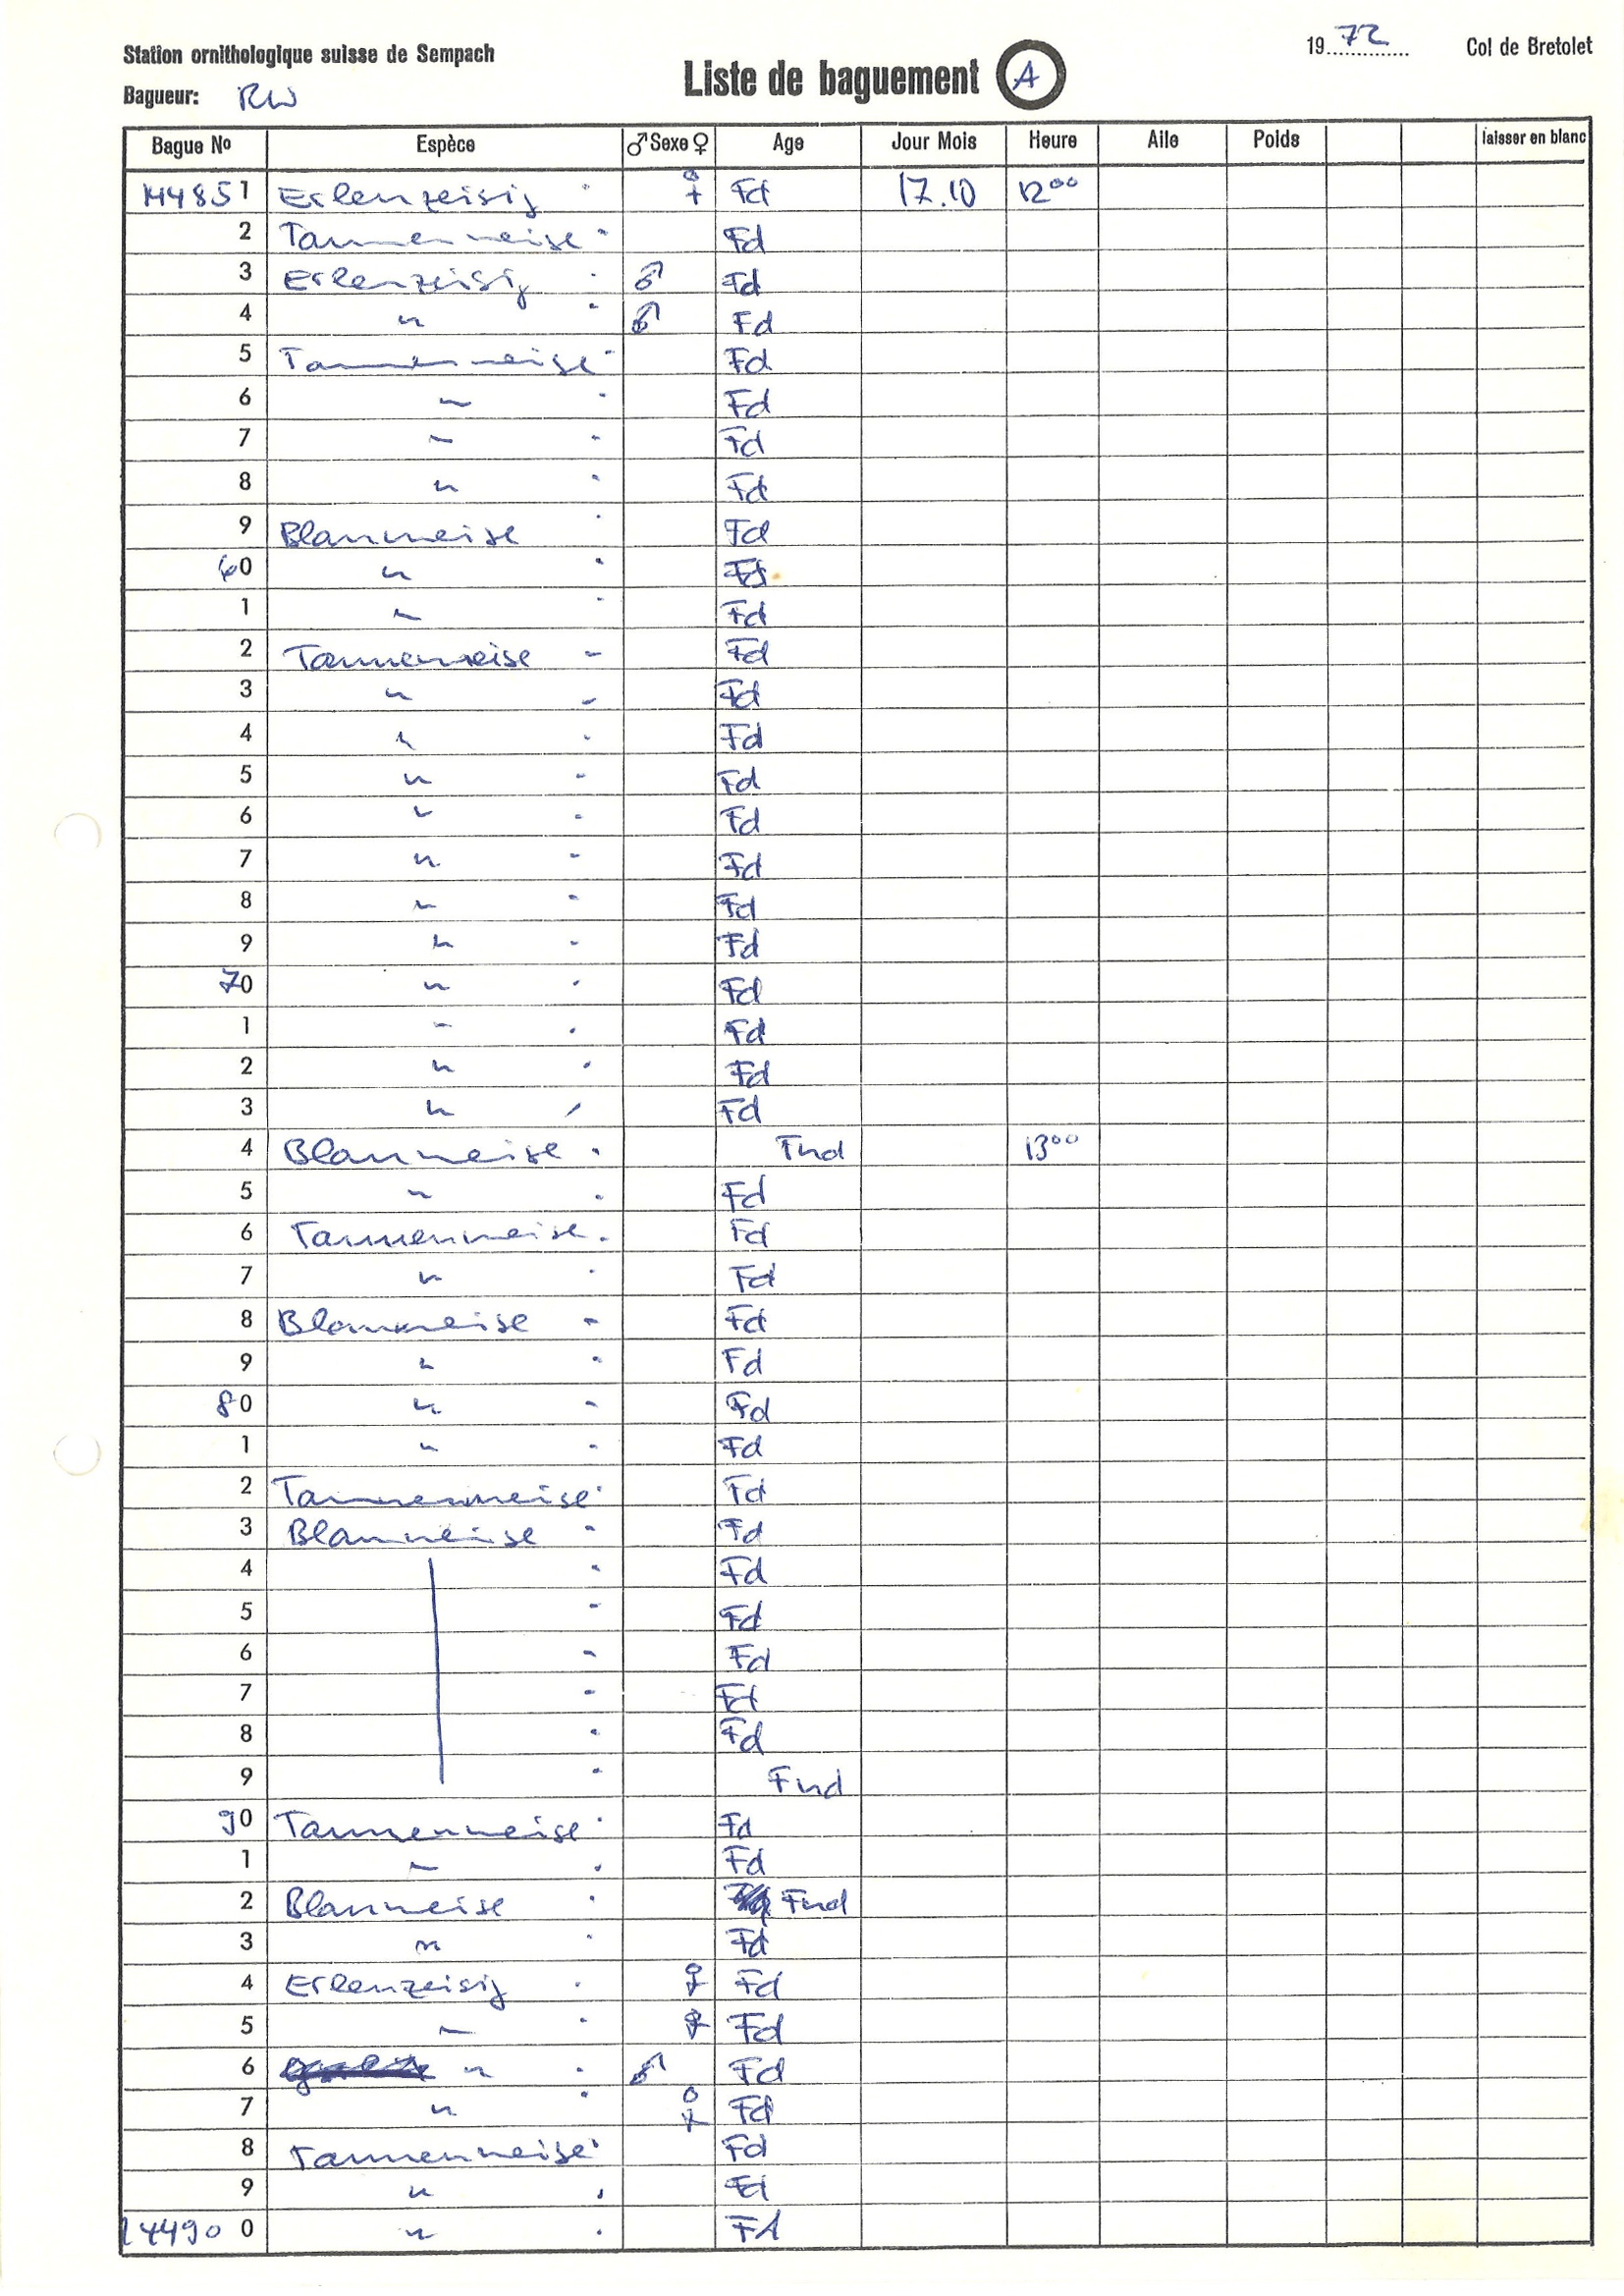 Station ornithologique suisse de Sempach
19 72 Col de Bretolet
Liste de baguement A
Bagueur: RW
Bague No Espèce ♂ Sexe ♀ Age Jour Mois Heure Aile Poids laisser en blanc
144851 Erlenzeisig ♀ Fd 17.10 12⁰⁰
2 Tannenmeise Fd
3 Erlenzeisig ♂ Fd
4 " ♂ Fd
5 Tannenmeise Fd
6 " Fd
7 " Fd
8 " Fd
9 Blaumeise Fd
60 " Fd
1 " Fd
2 Tannenmeise Fd
3 " Fd
4 " Fd
5 " Fd
6 " Fd
7 " Fd
8 " Fd
9 " Fd
70 " Fd
1 " Fd
2 " Fd
3 " Fd
4 Blaumeise Fnd 13⁰⁰
5 " Fd
6 Tannenmeise Fd
7 " Fd
8 Blaumeise Fd
9 " Fd
80 " Fd
1 " Fd
2 Tannenmeise Fd
3 Blaumeise Fd
4 Fd
5 Fd
6 Fd
7 Fd
8 Fd
9 Fnd
90 Tannenmeise Fd
1 " Fd
2 Blaumeise Fnd
3 " Fd
4 Erlenzeisig ♀ Fd
5 " ♀ Fd
6 " ♂ Fd
7 " ♀ Fd
8 Tannenmeise Fd
9 " Fd
14490 0 " Fd